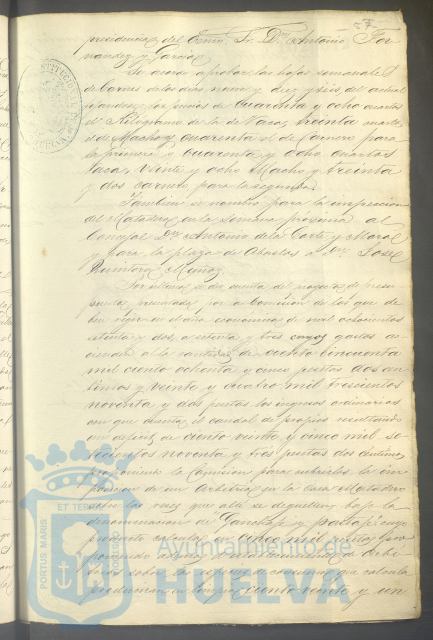 presidencia del Excmo. Sr. Dn. Antonio Fer-
nandez y Garcia.
Se acordó aprobar las hojas semanales
de carnes de los dias nueve y diez y seis del actual
quedando los precios de Cuarenta y ocho cuartos
el Kilogramo de la de Vaca, treinta cuartos
el de Macho y cuarenta el de Carnero para
la primera y cuarenta y ocho cuartos
Vaca, veinte y ocho Macho y treinta
y dos carnero para la segunda.
Tambien se nombró para la inspeccion
del Matadero en la semana proxima al
Concejal Dn. Antonio de la Corte y Moral
y para la plaza de Abastos a Dn. José
Quintero Muñoz
Por ultimo se dió cuenta del proyecto de presu-
puestos presentado por la Comision de los que de-
ben regir en el año economico de mil ochocientos
setenta y dos a setenta y tres cuyos gastos as-
cienden a la cantidad de ciento cincuenta
mil ciento ochenta y cinco pesetas dos cen-
timos y veinte y cuatro mil trescientos
noventa y dos pesetas los ingresos ordinarios
con que cuenta el caudal de propios resultando
un deficit de ciento veinte y cinco mil se-
tecientos noventa y tres pesetas dos centimos
proponiendo la Comision para cubrirlo la im-
posicion de un arbitrio en la casa Matadero
sobre las reses que alli se deguellen bajo la
denominacion de
producto calcula en ocho mil pesetas pro-
poniendo
sobre las especies de consumos que calcula
produciran un ciento veinte y un
PORTUS MARIS ET TERRAE CUSTODIA
Ayuntamiento de
HUELVA